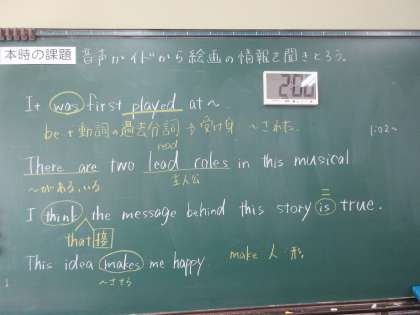 本時の課題 音声ガイドから絵画の情報を聞きとろう。
2:00
It was first played at～.
be+動詞の過去分詞 受け身 ～された
1:02～
There are two lead roles in this musical
～がある,いる 主人公
I think the message behind this story is true.
that 接
This idea makes me happy. make 人 形
～させる